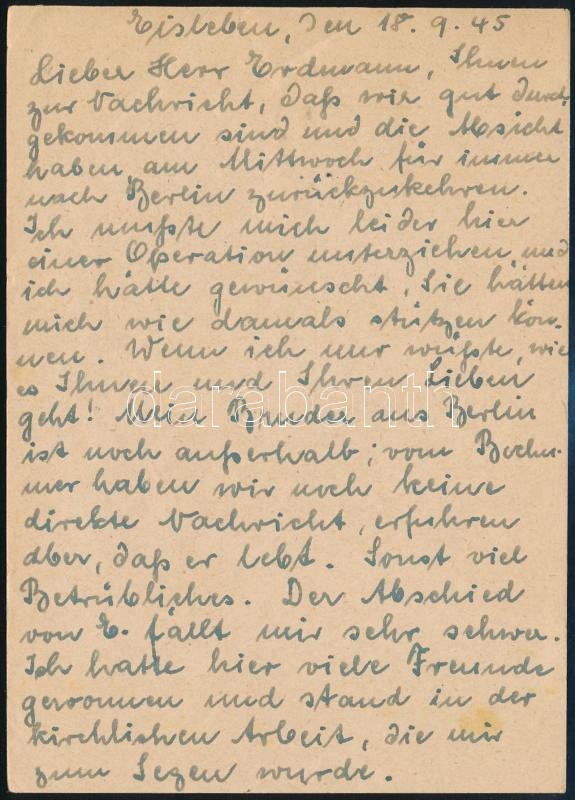 Eisleben, den 18. 9. 45
Lieber Herr Erdmann, Ihnen
zur Nachricht, daß wir gut durch-
gekommen sind und die Absicht
haben am Mittwoch für immer
nach Berlin zurückzukehren.
Ich mußte mich leider hier
einer Operation unterziehen und
ich hätte gewünscht, Sie hätten
mich wie damals stützen kön-
nen. Wenn ich nur wüßte, wie
es Ihnen und Ihren Lieben
geht! Mein Bruder aus Berlin
ist noch außerhalb; vom
haben wir noch keine
direkte Nachricht, erfuhren
aber, daß er lebt. Sonst viel
Betrübliches. Der Abschied
von E. fällt mir sehr schwer.
Ich hatte hier viele Freunde
gewonnen und stand in der
kirchlichen Arbeit, die mir
zum Segen wurde.
darabanth